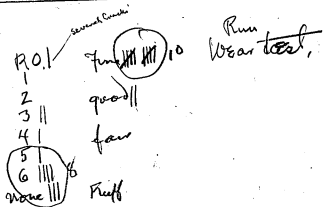 several cracks
R.O.1
Fine |||| |||| 10
Run
Wear test.
1
2
good ||
3 ||
4 |
fair
5 |
6 ||||
8
none |||